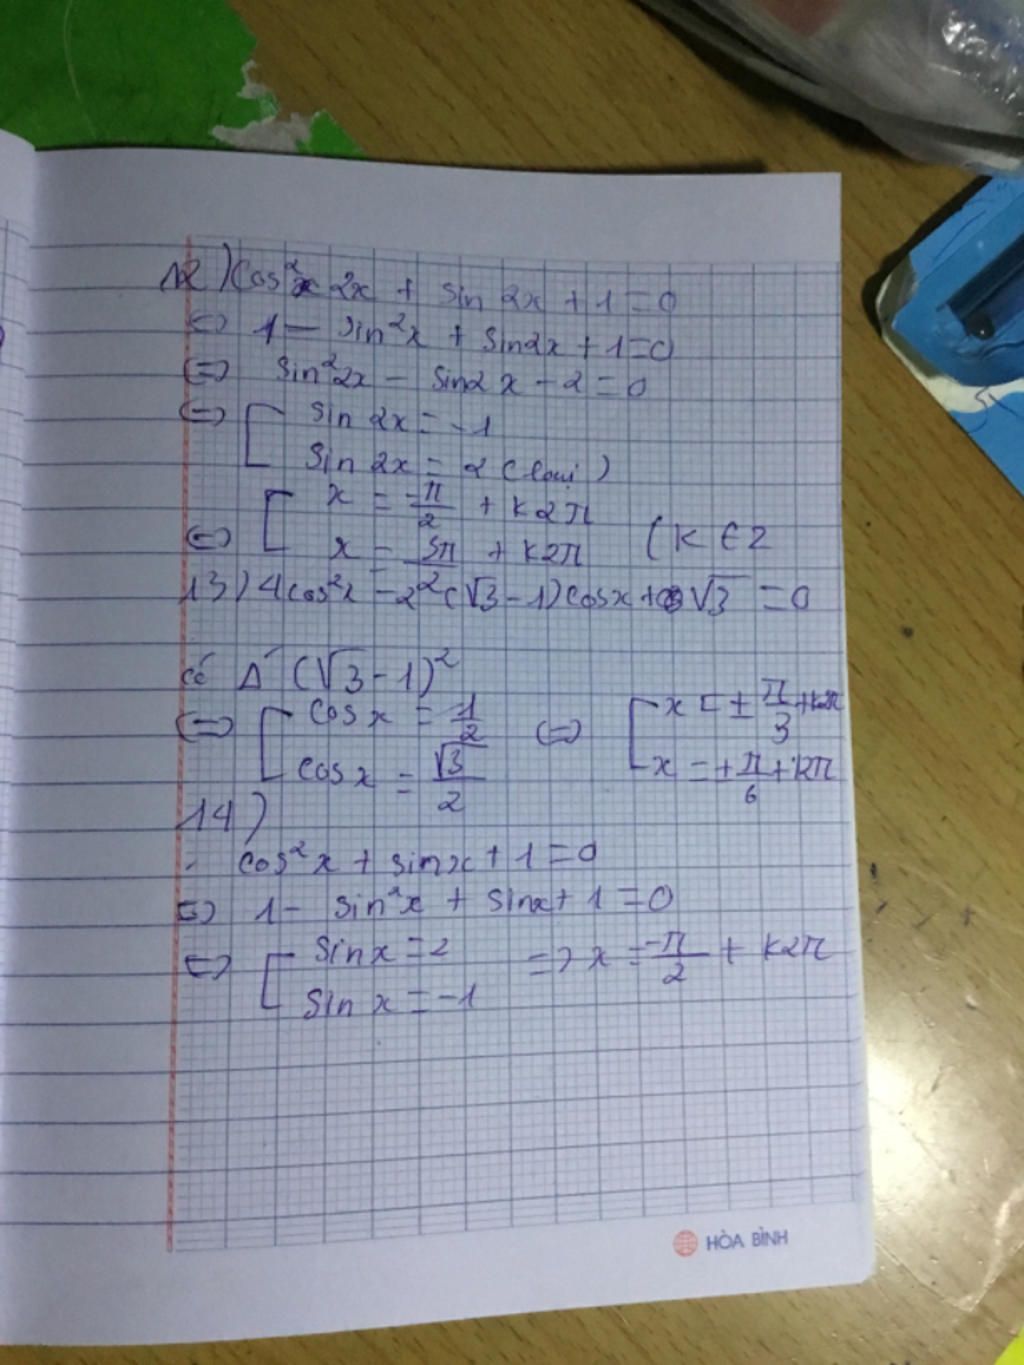 12) cos² 2x + sin 2x + 1 = 0
<=> 1 - sin²x + sin2x + 1 = 0
<=> sin²2x - sin2x - 2 = 0
<=> [ sin 2x = -1
sin 2x = 2 (loại)
<=> [ x = -π/2 + k2π
x = 5π + k2π (k ∈ Z
13) 4cos²x - 2²(√3 - 1)cosx + √3 = 0
có Δ' (√3 - 1)²
<=> [ cos x = -1/2 <=> [ x = ± π/3 + k2π
cos x = √3/2 x = ± π/6 + k2π
14)
cos²x + sinx + 1 = 0
<=> 1 - sin²x + sinx + 1 = 0
<=> [ sin x = 2 => x = -π/2 + k2π
sin x = -1
HÒA BÌNH